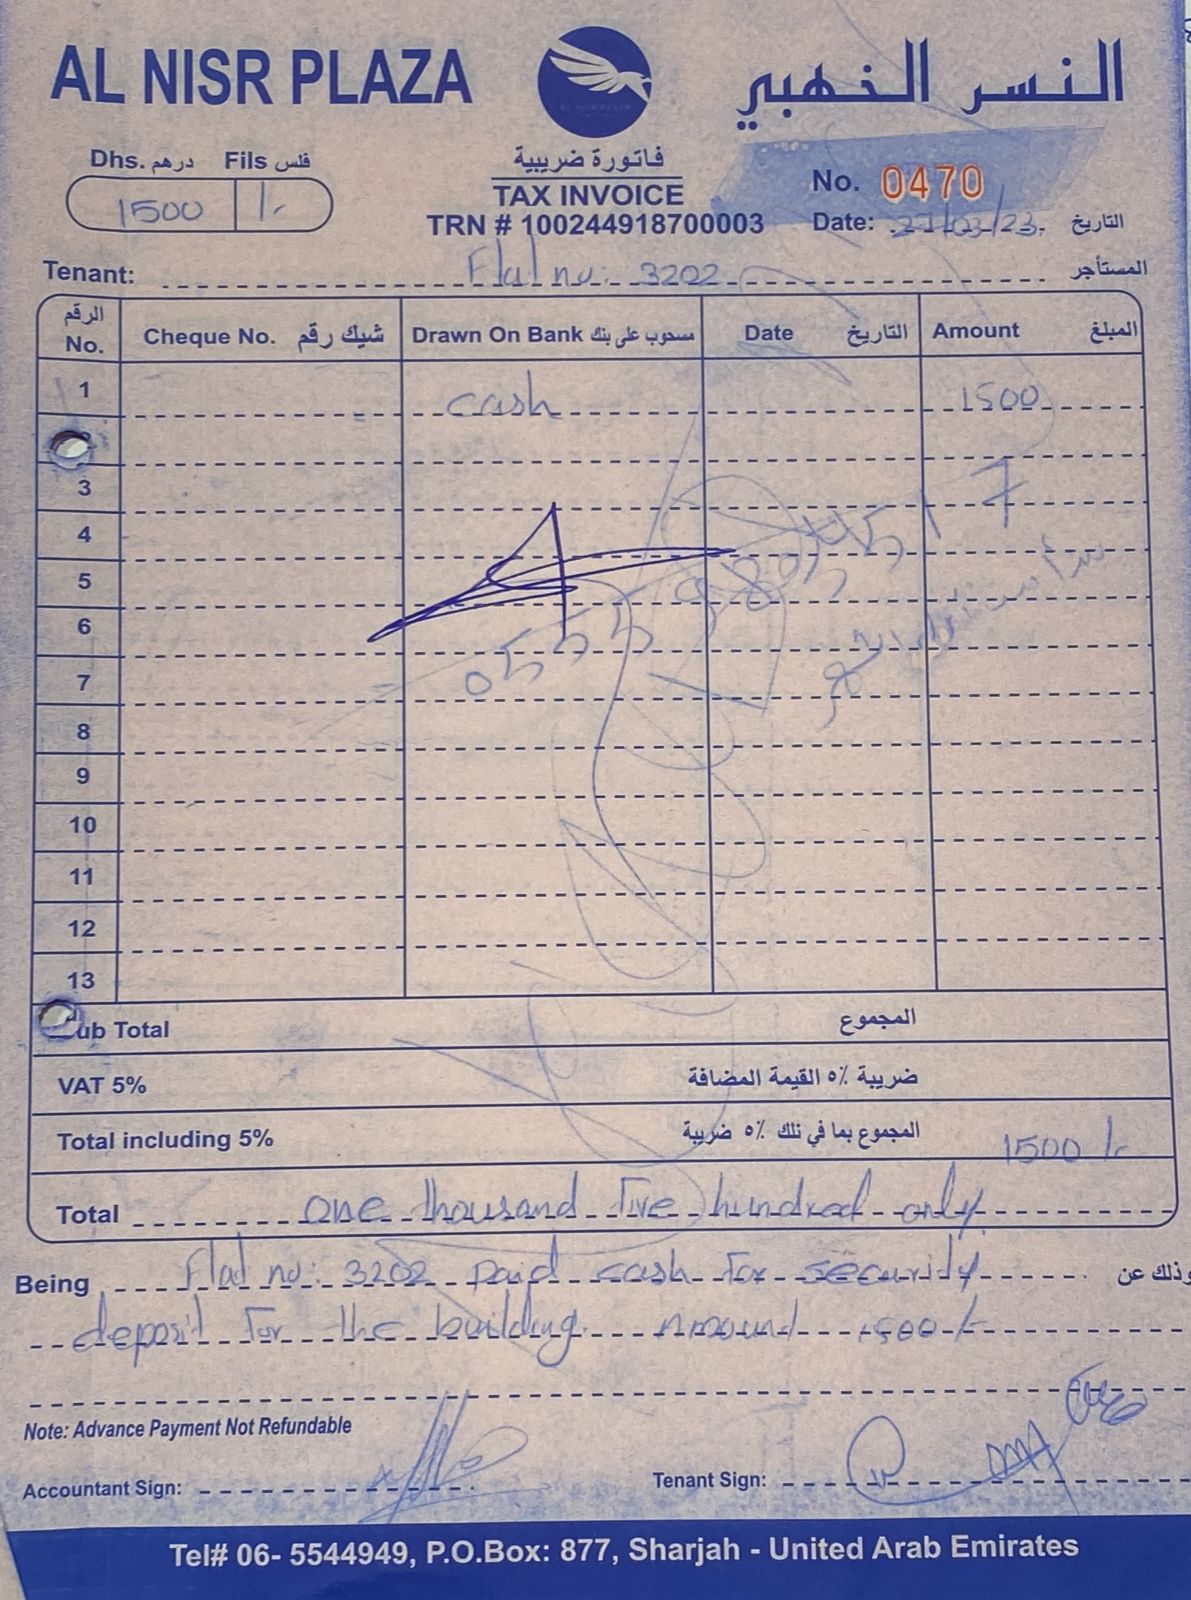 AL NISR PLAZA
النسر الذهبي
Dhs. درهم Fils فلس
1500 /-
فاتورة ضريبية
TAX INVOICE
TRN # 100244918700003
No. 0470
Date: /03/23 التاريخ
Tenant: Flat no: 3202 المستأجر
الرقم No. Cheque No. شيك رقم Drawn On Bank مسحوب على بنك Date التاريخ Amount المبلغ
1 cash 1500
3
4
5
6
7
8
9
10
11
12
13
Sub Total المجموع
VAT 5% ضريبة ٥٪ القيمة المضافة
Total including 5% المجموع بما في ذلك ٥٪ ضريبة 1500 /-
Total one thousand five hundred only
Being Flat no: 3202 paid cash for security وذلك عن
deposit for the building. Amount 1500/-
Note: Advance Payment Not Refundable
Accountant Sign:
Tenant Sign:
Tel# 06- 5544949, P.O.Box: 877, Sharjah - United Arab Emirates